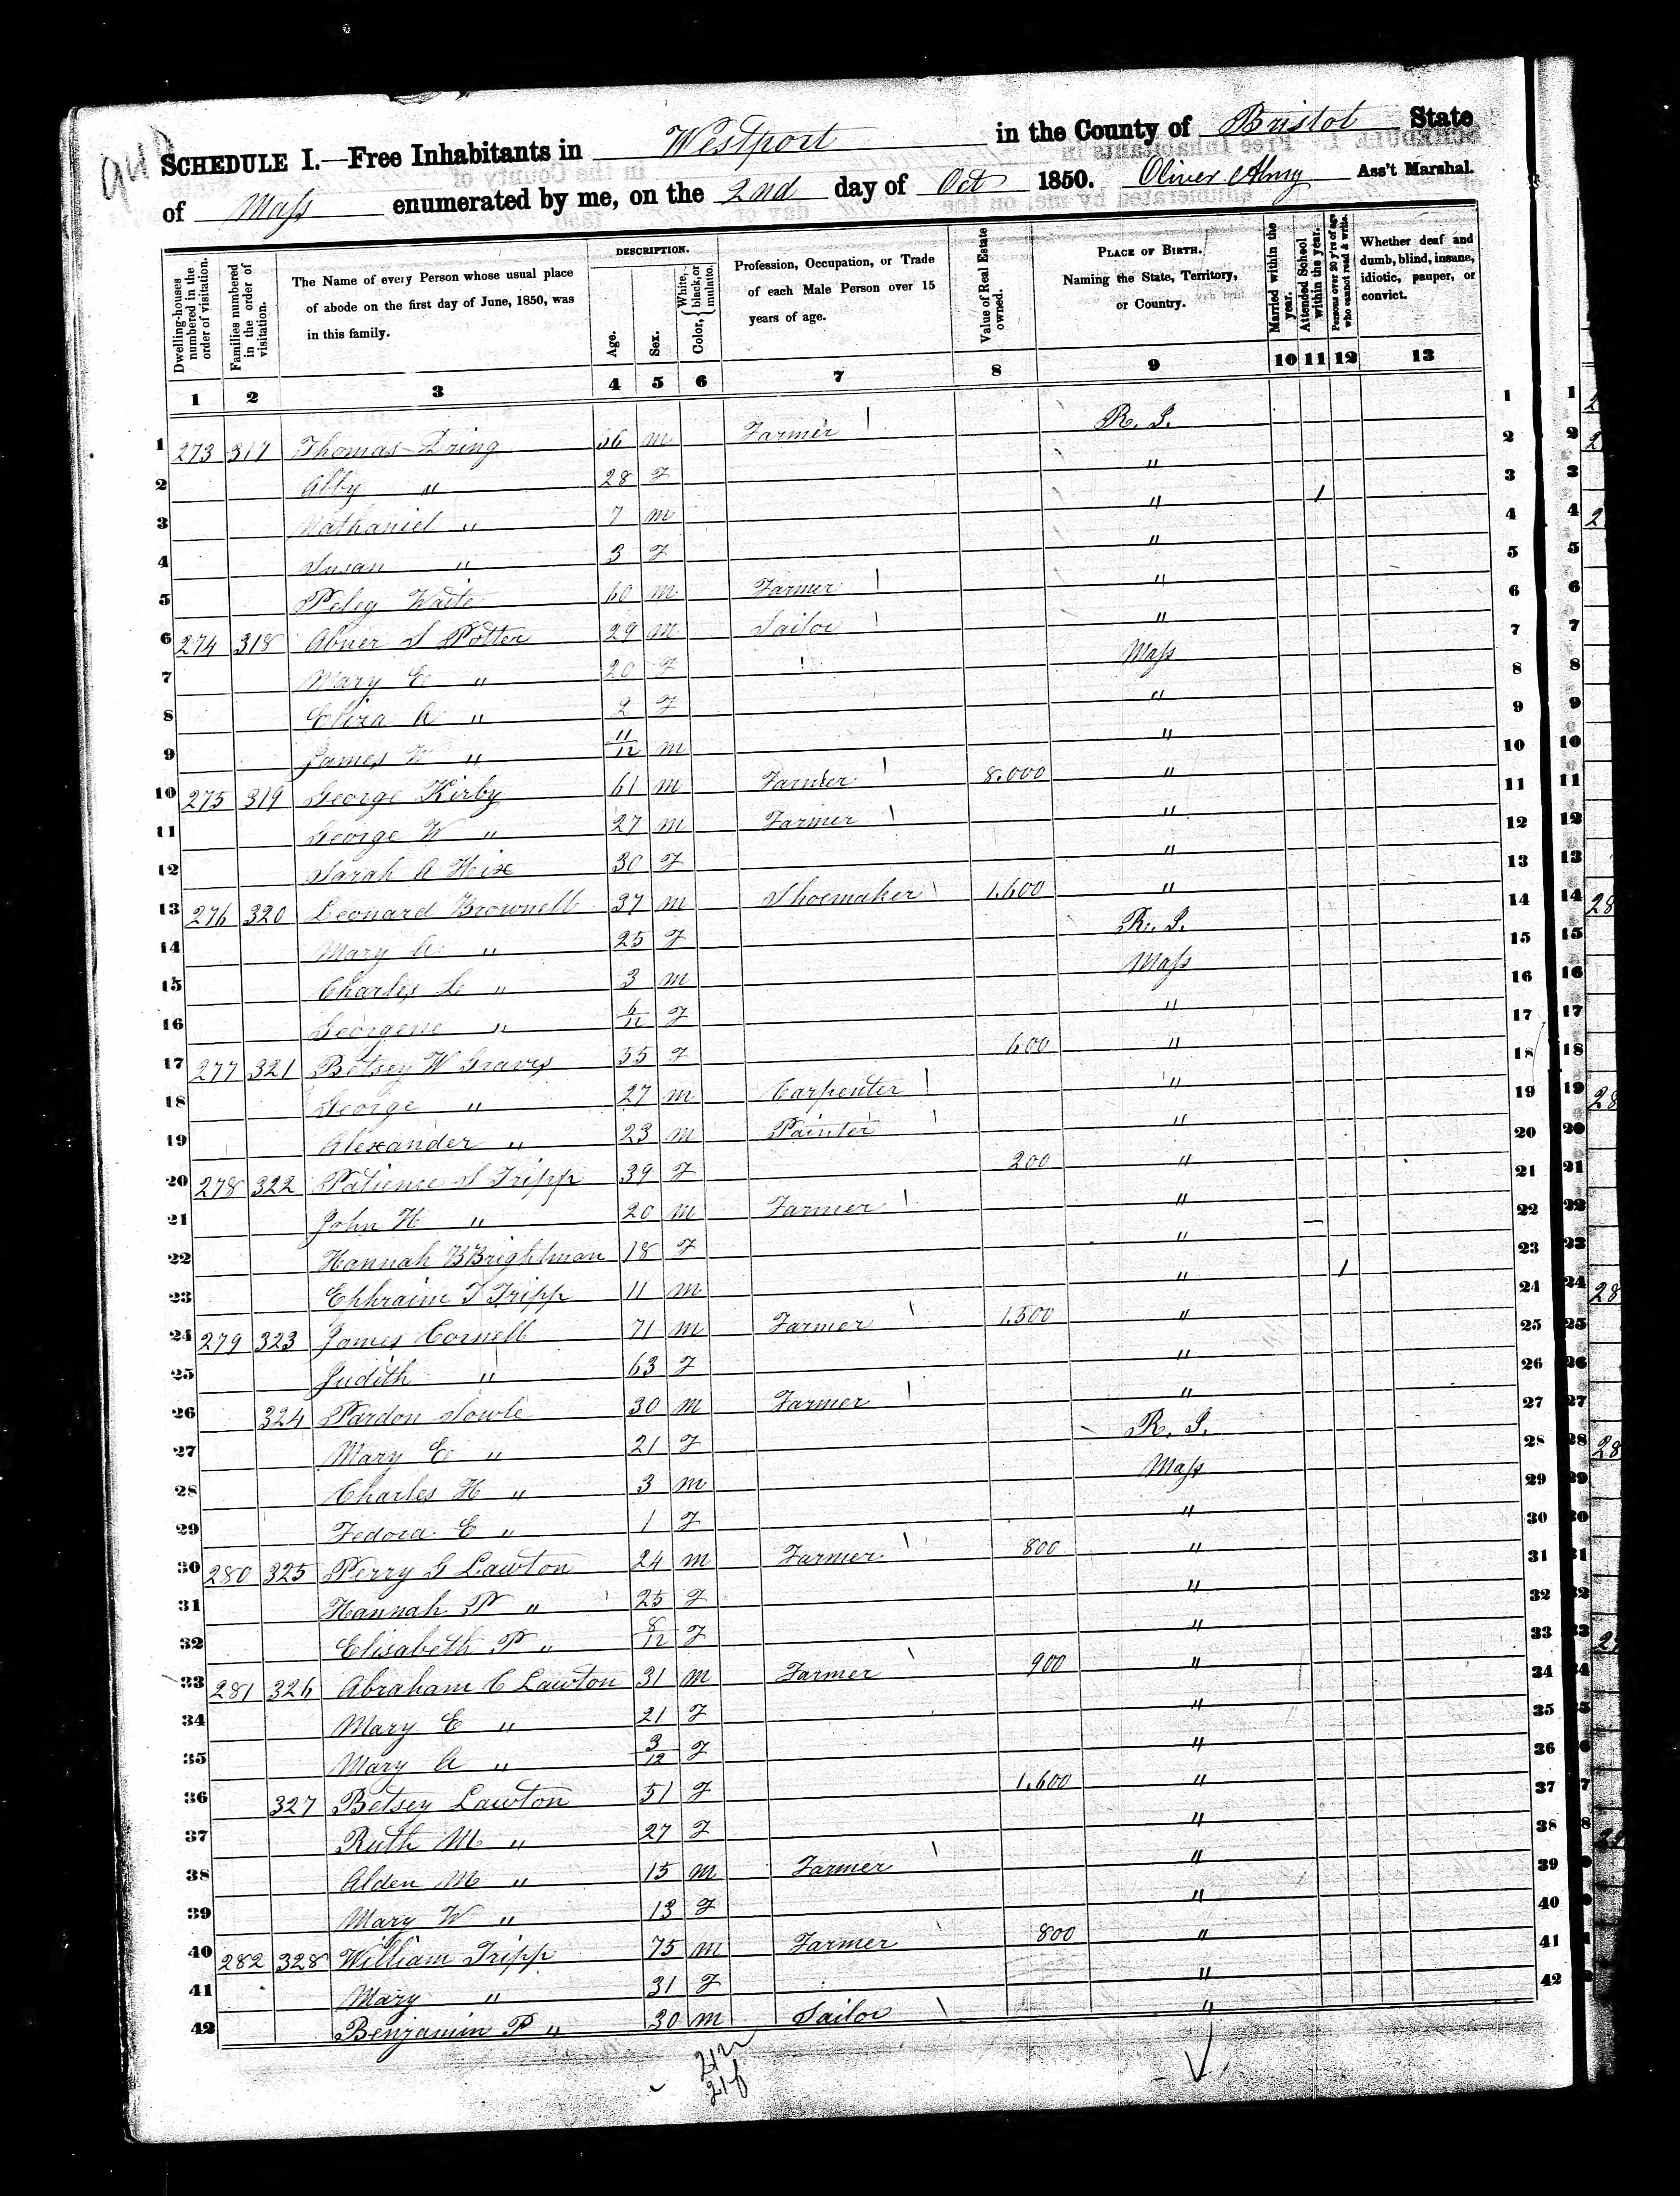 SCHEDULE I.—Free Inhabitants in Westport in the County of Bristol State
of Mass enumerated by me, on the 2nd day of Oct 1850. Oliver Almy Ass't Marshal.
Dwelling-houses numbered in the order of visitation.
Families numbered in the order of visitation.
The Name of every Person whose usual place of abode on the first day of June, 1850, was in this family.
DESCRIPTION.
Age.
Sex.
Color, { White, black, or mulatto.
Profession, Occupation, or Trade of each Male Person over 15 years of age.
Value of Real Estate owned.
PLACE OF BIRTH. Naming the State, Territory, or Country.
Married within the year.
Attended School within the year.
Persons over 20 y'rs of age who cannot read & write.
Whether deaf and dumb, blind, insane, idiotic, pauper, or convict.
1 2 3 4 5 6 7 8 9 10 11 12 13
1 273 317 Thomas Dring 56 m Farmer R. I. 1
2 Abby " 28 F " 2
3 Nathaniel " 7 m " 1 3
4 Susan " 3 F " 4
5 Peleg Waite 60 m Farmer " 5
6 274 318 Abner S Potter 29 m Sailor " 6
7 Mary E " 20 F Mass 7
8 Eliza A " 2 F " 8
9 James W " 11/12 m " 9
10 275 319 George Kirby 61 m Farmer 8.000 " 10
11 George W " 27 m Farmer " 11
12 Sarah A Hix 30 F " 12
13 276 320 Leonard Brownell 37 m Shoemaker 1.600 " 13
14 Mary A " 25 F R. I. 14
15 Charles L " 3 m Mass 15
16 Georgene " 6/12 F " 16
17 277 321 Betsey W Graves 55 F 600 " 17
18 George " 27 m Carpenter " 18
19 Alexander " 23 m Painter " 19
20 278 322 Patience S Tripp 39 F 200 " 20
21 John H " 20 m Farmer " 21
22 Hannah B Brightman 18 F " 22
23 Ephraim T Tripp 11 m " 1 23
24 279 323 James Cornell 71 m Farmer 1.500 " 24
25 Judith " 63 F " 25
26 324 Pardon Sowle 30 m Farmer " 26
27 Mary E " 21 F R. I. 27
28 Charles H " 3 m Mass 28
29 Fedora E " 1 F " 29
30 280 325 Perry G Lawton 24 m Farmer 800 " 30
31 Hannah P " 25 F " 31
32 Elisabeth P " 8/12 F " 32
33 281 326 Abraham C Lawton 31 m Farmer 900 " 33
34 Mary E " 21 F " 34
35 Mary A " 3/12 F " 35
36 327 Betsey Lawton 51 F 1.600 " 36
37 Ruth M " 27 F " 37
38 Alden M " 15 m Farmer " 38
39 Mary W " 13 F " 39
40 282 328 William Tripp 75 m Farmer 800 " 40
41 Mary " 31 F " 41
42 Benjamin P " 30 m Sailor " 42